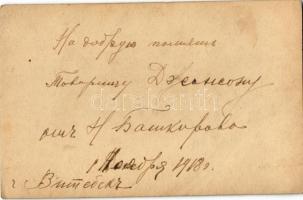 На добрую память
Товарищу Джонсону
отъ Н Башкирова
1 Ноября 1918 г.
г Витебскъ